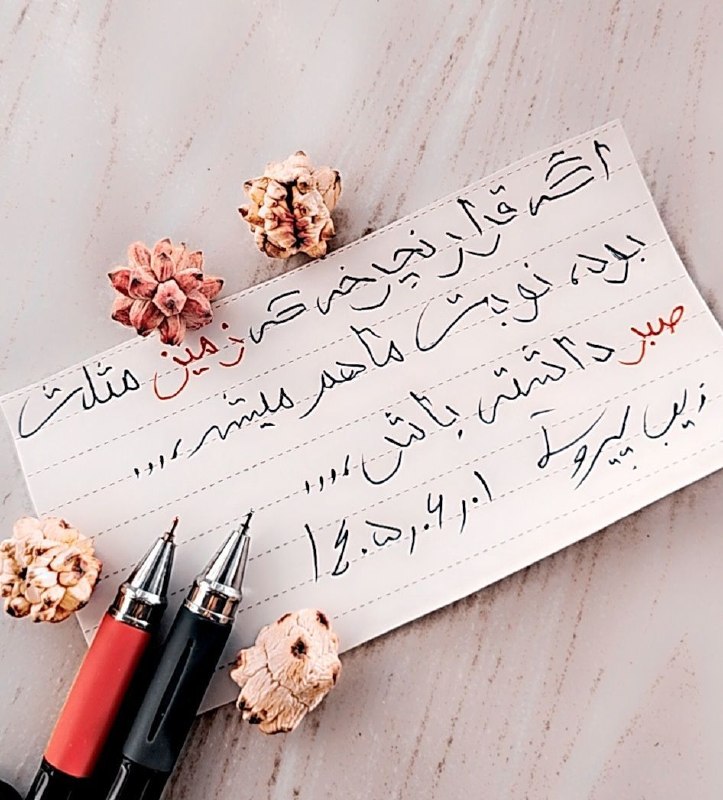 اگه قرار نچرخه که زمین مثلث
بود، نوبت ما هم میشه،،،،
صبر داشته باش،،،،
زیب پیروست
۱۴۰۵،۰۶،۰۱